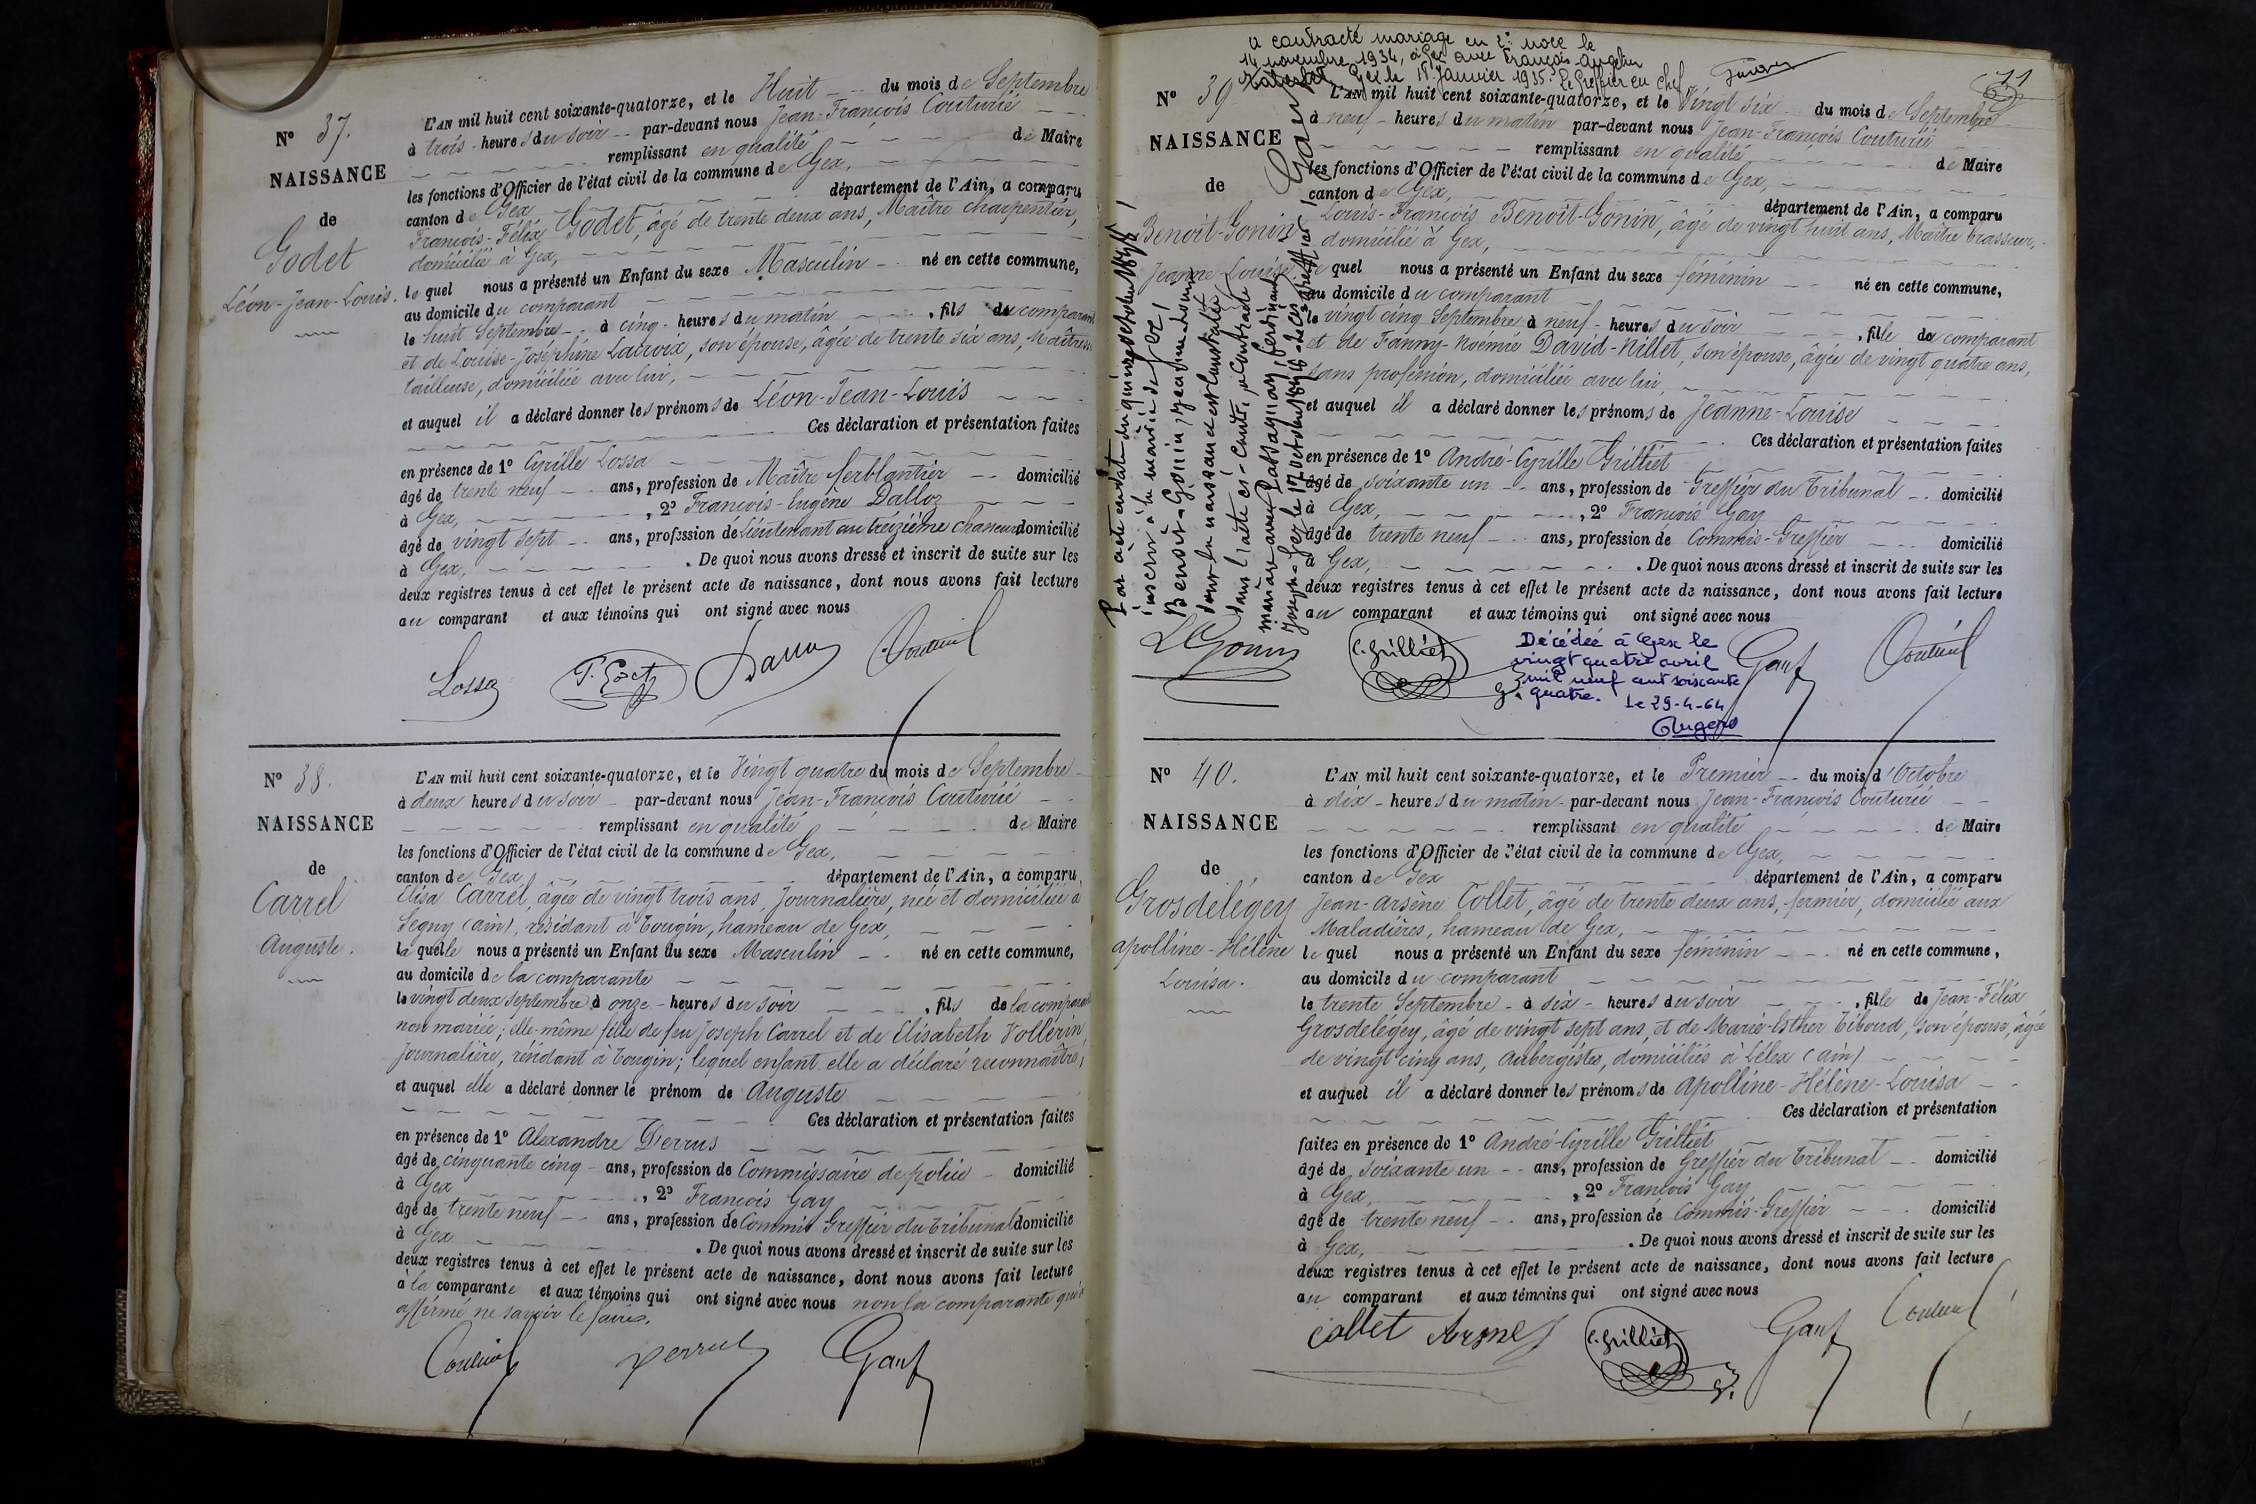 N° 37.
NAISSANCE
de
Godet
Léon-Jean-Louis.
L'AN mil huit cent soixante-quatorze, et le Huit du mois de Septembre
à trois heures du soir par-devant nous Jean-François Couturié
remplissant en qualité de Maire
les fonctions d'Officier de l'état civil de la commune de Gex,
canton de Gex département de l'Ain, a comparu
François-Félix Godet, âgé de trente deux ans, Maître charpentier,
domicilié à Gex,
lequel nous a présenté un Enfant du sexe Masculin né en cette commune,
au domicile du comparant
le huit Septembre à cinq heures du matin, fils du comparant
et de Louise-Joséphine Lacroix, son épouse, âgée de trente six ans, Maîtresse
tailleuse, domiciliée avec lui,
et auquel il a déclaré donner les prénoms de Léon-Jean-Louis
Ces déclaration et présentation faites
en présence de 1° Cyrille Lossa
âgé de trente neuf ans, profession de Maître ferblantier domicilié
à Gex, , 2° François-Eugène Dalloz
âgé de vingt sept ans, profession de Lieutenant au treizième chasseurs domicilié
à Gex, . De quoi nous avons dressé et inscrit de suite sur les
deux registres tenus à cet effet le présent acte de naissance, dont nous avons fait lecture
au comparant et aux témoins qui ont signé avec nous
Lossa
N° 38.
NAISSANCE
de
Carrel
Auguste.
L'AN mil huit cent soixante-quatorze, et le Vingt quatre du mois de Septembre
à deux heures du soir par-devant nous Jean-François Couturié
remplissant en qualité de Maire
les fonctions d'Officier de l'état civil de la commune de Gex,
canton de Gex département de l'Ain, a comparu
Elisa Carrel, âgée de vingt trois ans, Journalière, née et domiciliée à
Segny (Ain), résidant à Tougin, hameau de Gex,
laquelle nous a présenté un Enfant du sexe Masculin né en cette commune,
au domicile de la comparante
le vingt deux Septembre à onze heures du soir, fils de la comparante
non mariée; elle-même fille de feu Joseph Carrel et de Elisabeth Vollerin,
Journalière, résidant à Tougin; lequel enfant elle a déclaré reconnaître,
et auquel elle a déclaré donner le prénom de Auguste
Ces déclaration et présentation faites
en présence de 1° Alexandre Perrus
âgé de cinquante cinq ans, profession de Commissaire de police domicilié
à Gex , 2° François Gay
âgé de trente neuf ans, profession de Commis Greffier du Tribunal domicilié
à Gex . De quoi nous avons dressé et inscrit de suite sur les
deux registres tenus à cet effet le présent acte de naissance, dont nous avons fait lecture
à la comparante et aux témoins qui ont signé avec nous non la comparante qui a
affirmé ne savoir le faire.
a contracté mariage en 2e noce le
14 novembre 1934, à Gex avec François Angelin
Gex le 15 Janvier 1935. Le Greffier en chef
N° 39
NAISSANCE
de
Benoit-Gonin
Jeanne-Louise
Par acte en date du quinze octobre
inscrit à la mairie de
Benoît-Gonin, Jeanne-Louise
dont la naissance est constatée
dans l'acte ci-contre, a contracté
mariage avec Passaquay, Ferdinand
Joseph. Gex le 17 octobre
L'AN mil huit cent soixante-quatorze, et le Vingt six du mois de Septembre
à neuf heures du matin par-devant nous Jean-François Couturié
remplissant en qualité de Maire
les fonctions d'Officier de l'état civil de la commune de Gex,
canton de Gex, département de l'Ain, a comparu
Louis-François Benoit-Gonin, âgé de vingt huit ans, Maître brasseur,
domicilié à Gex,
lequel nous a présenté un Enfant du sexe féminin né en cette commune,
au domicile du comparant
le vingt cinq Septembre à neuf heures du soir, fille du comparant
et de Fanny-Noémie David-Nillet, son épouse, âgée de vingt quatre ans,
sans profession, domiciliée avec lui,
et auquel il a déclaré donner les prénoms de Jeanne-Louise
Ces déclaration et présentation faites
en présence de 1° André-Cyrille Grilliet
âgé de soixante un ans, profession de Greffier du Tribunal domicilié
à Gex, , 2° François Gay
âgé de trente neuf ans, profession de Commis-Greffier domicilié
à Gex, . De quoi nous avons dressé et inscrit de suite sur les
deux registres tenus à cet effet le présent acte de naissance, dont nous avons fait lecture
au comparant et aux témoins qui ont signé avec nous
LGonin
C. Grilliet
Décédée à Gex le
vingt quatre avril
mil neuf cent soixante
quatre. Le 29-4-64
N° 40.
NAISSANCE
de
Grosdelégey
Apolline-Hélène
Louisa.
L'AN mil huit cent soixante-quatorze, et le Premier du mois d'Octobre
à dix heures du matin par-devant nous Jean-François Couturié
remplissant en qualité de Maire
les fonctions d'Officier de l'état civil de la commune de Gex,
canton de Gex département de l'Ain, a comparu
Jean-Arsène Collet, âgé de trente deux ans, fermier, domicilié aux
Maladières, hameau de Gex,
lequel nous a présenté un Enfant du sexe féminin né en cette commune,
au domicile du comparant
le trente Septembre à six heures du soir, fille de Jean-Félix
Grosdelégey, âgé de vingt sept ans, et de Marie-Esther Tiboud, son épouse, âgée
de vingt cinq ans, Aubergistes, domiciliés à Lélex (Ain)
et auquel il a déclaré donner les prénoms de Apolline-Hélène-Louisa
Ces déclaration et présentation
faites en présence de 1° André-Cyrille Grilliet
âgé de soixante un ans, profession de Greffier du Tribunal domicilié
à Gex, , 2° François Gay
âgé de trente neuf ans, profession de Commis-Greffier domicilié
à Gex, . De quoi nous avons dressé et inscrit de suite sur les
deux registres tenus à cet effet le présent acte de naissance, dont nous avons fait lecture
au comparant et aux témoins qui ont signé avec nous
Collet Arsène
C. Grilliet